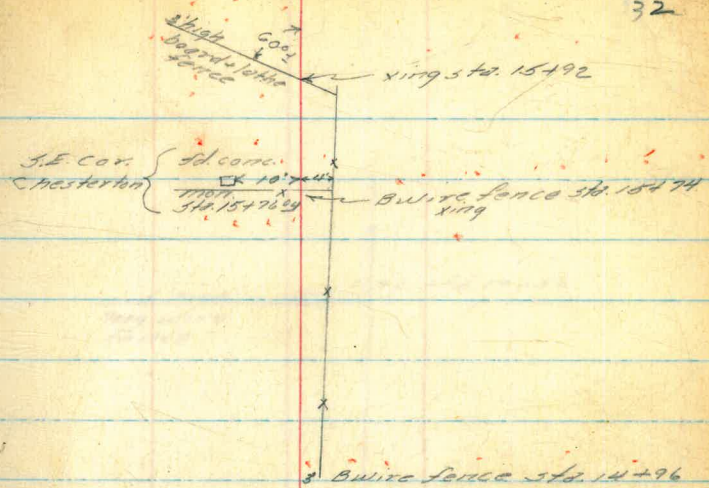 32
3' high
board & lathe
fence
60°±
xing sta. 15+92
S.E. Cor.
Chesterton
fd. conc.
mon.
sta. 15+76
10'
4'
B wire fence sta. 15+74
xing
3'
B wire fence sta. 14+96